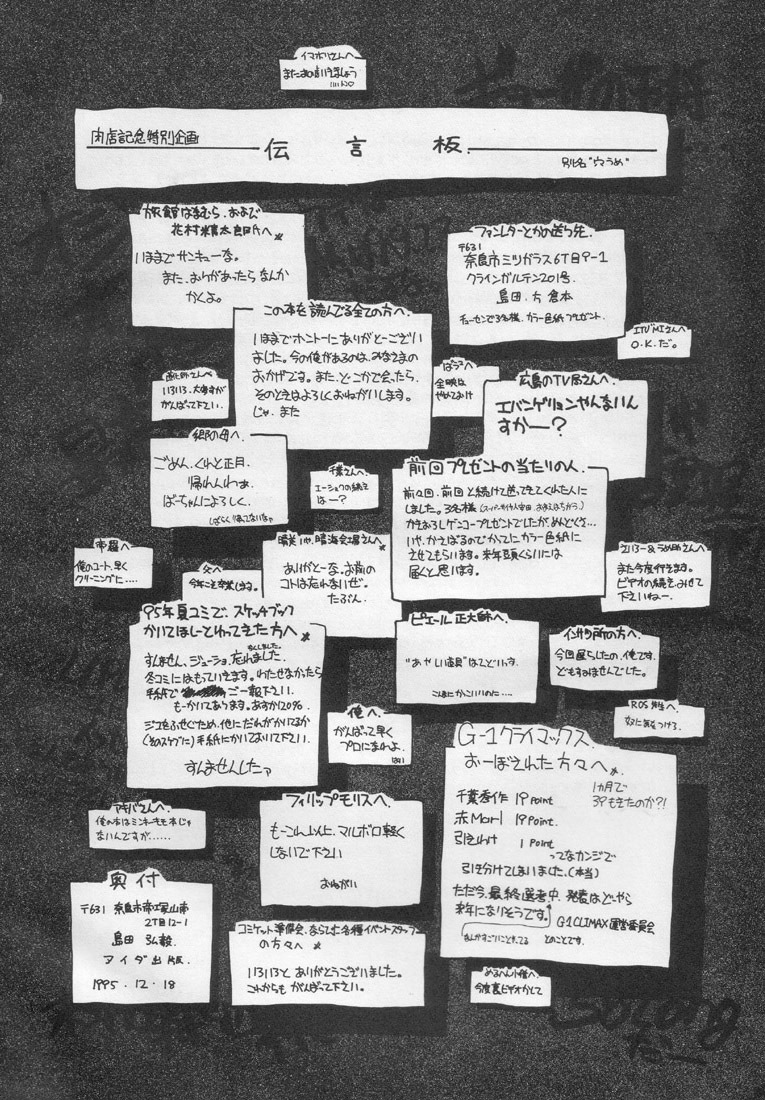 イマホリさんへ
またおあいしましょう
肉店記念特別企画
伝言板
別名"穴うめ"
旅館はまむら、および
花村米真太郎氏へ
いままでサンキューな。
また、おりがあったらなんか
かくよ。
ファンレターとかの送り先
〒631
奈良市ミツガラス6丁目9-1
クラインガルテン201号
島田.方 倉本
チョーセンで3名様、カラー色紙プレゼント.
この本を読んでる全ての方へ.
いままでホントーにありがとーござい
ました。今の俺があるのは、みなさまの
おかげです。また、どこかで会ったら、
そのときはよろしくおねがいします。
じゃ、また
O.K.だ。
いろいろ、大変すが
がんばって下さい.
全映は
やめておけ
広島のTV局さんへ.
エバンゲリョンやんないん
すかー?
郷の母へ.
ごめん.くれと正月.
帰れんわぁ.
ばーちゃんによろしく.
しばらく帰ってないなぁ
千葉さんへ.
エーショウの続き
はー?
前回プレゼントの当たりの人.
前々回、前回と続けて送ってきてくれた人に
しました。3名様
かきおろしゲンコープレゼントでしたが、めんどくさ…
いや、かえばるのでかってに、カラー色紙に
させてもらいます。来年頭くらいには
届くと思います.
帝羅へ
俺のコート、早く
クリーニングに……
父へ
今年こそ卒業します。
晴海会場さんへ
ありがとーな。お前の
コトは忘れないぜ。
たぶん.
また今度行きます。
ビデオの続き、みせて
下さいねー.
95年夏コミで、スケッチブック
かいてほしーとわってきた方へ
すんません、ジューショ、忘れました.
冬コミにはもっていきます。わたせなかったら
手紙で ご一報下さい.
もーかいてあります。あすか120%
ジコをふせぐため、他にだれがかいてるか
(そのスケブに)手紙にかいておいて下さい.
すんませんしたァ
ピエール正大師へ.
"あやしい道具"はてどいっす.
インサツ所の方へ.
今回遅らしたの、俺です.
どもすみませんでした。
俺へ.
がんばって早く
プロになれよ.
はい
ROS先生へ.
女に気をつけろ.
G-1クライマックス.
おーぼされた方々へ.
1カ月で
39もきたのか?!
千葉秀作 19 Point
赤Mari 19 Point.
引きわけ 1 Point
ってなカンジで
引き分けてしまいました.(本当)
ただ今、最終選考中.発表はどーやら
来年になりそうです.
G-1 CLIMAX運営委員会
なんかすごいことになってる とのことです.
アキバさんへ.
俺の本はミンキーモモ本じゃ
ないんですが……
フィリップモリスへ.
もーこれ以上、マルボロ軽く
しないで下さい
おねがい
奥付
〒631 奈良市帝塚山南
2丁目12-1
島田 弘毅
アイダ出版.
1995.12.18
コミケット準備会、ならびに各種イベントスタッフー
の方々へ
いろいろと、ありがとうございました。
これからも がんばって下さい.
めるへん小僧へ.
今度裏ビデオかして